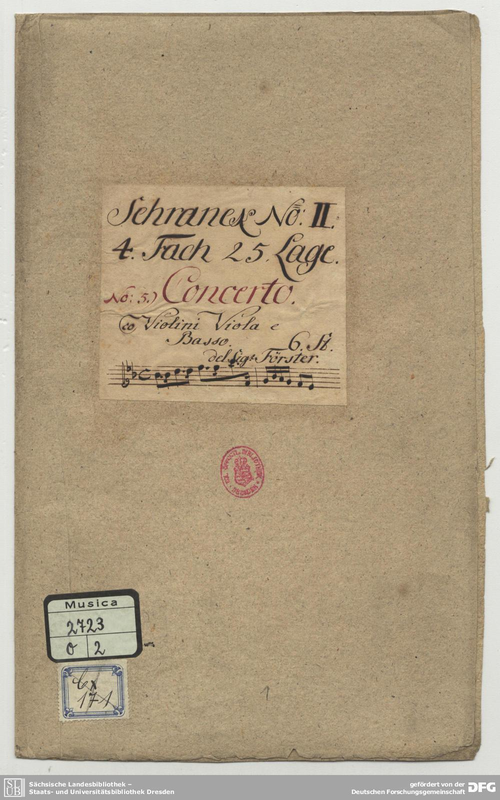 Schranck No: II.
4. Fach 25. Lage.
No: 5.) Concerto.
co Violini Viola e
Basso. 6. St.
del Sigr. Förster.
Musica
2723
O 2
Cx
171
1
SLUB
Sächsische Landesbibliothek –
Staats- und Universitätsbibliothek Dresden
gefördert von der
Deutschen Forschungsgemeinschaft
DFG